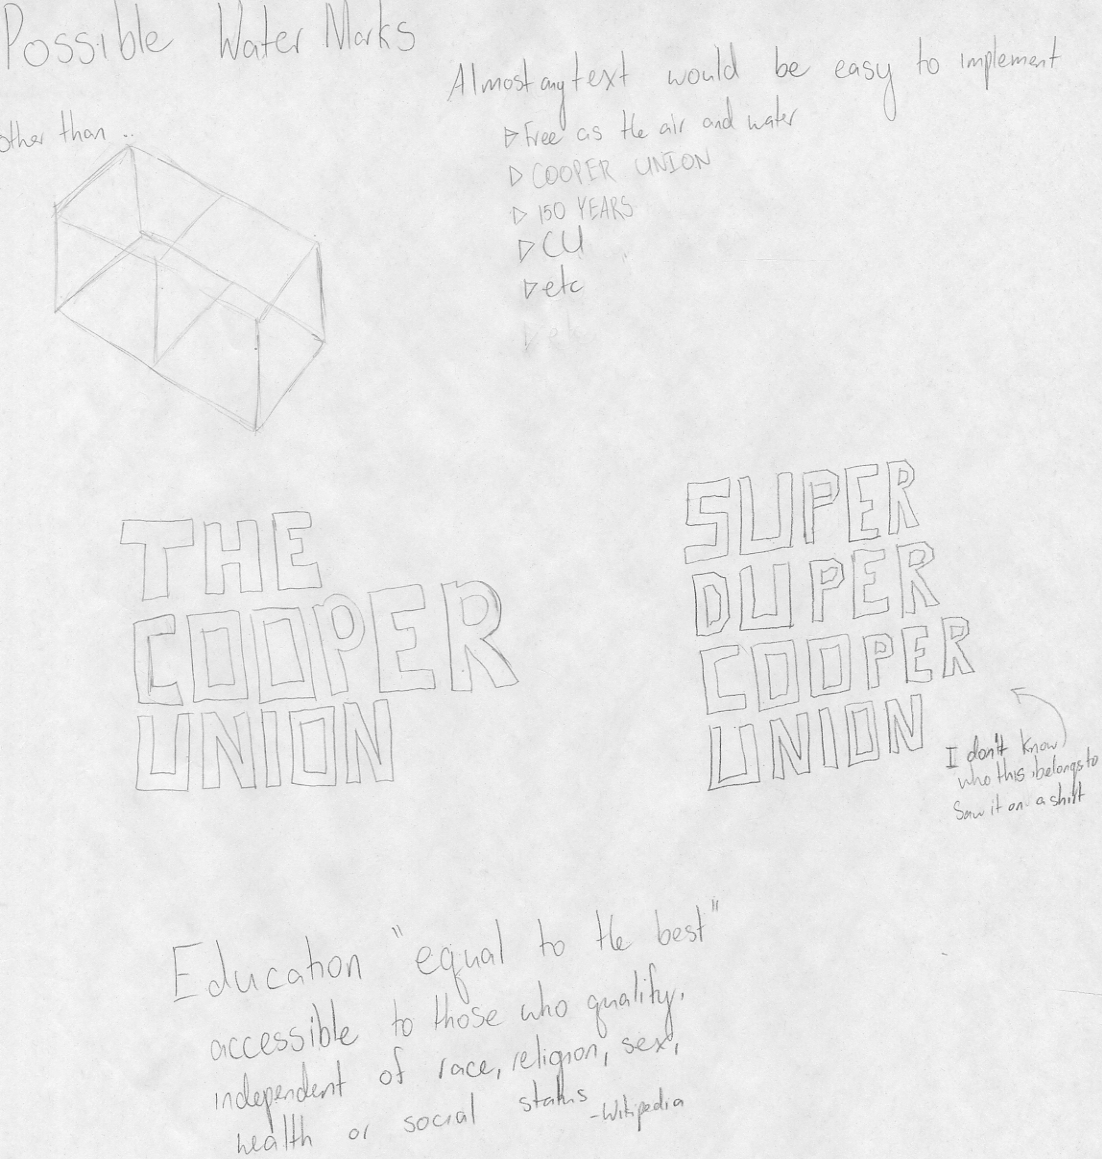 Possible Water Marks
other than ..
Almost any text would be easy to implement
▷ Free as the air and water
▷ COOPER UNION
▷ 150 YEARS
▷ CU
▷ etc
▷ etc
THE
COOPER
UNION
SUPER
DUPER
COOPER
UNION
I don't know
who this belongs to
Saw it on a shirt
Education "equal to the best"
accessible to those who qualify,
independent of race, religion, sex,
wealth or social status
-Wikipedia